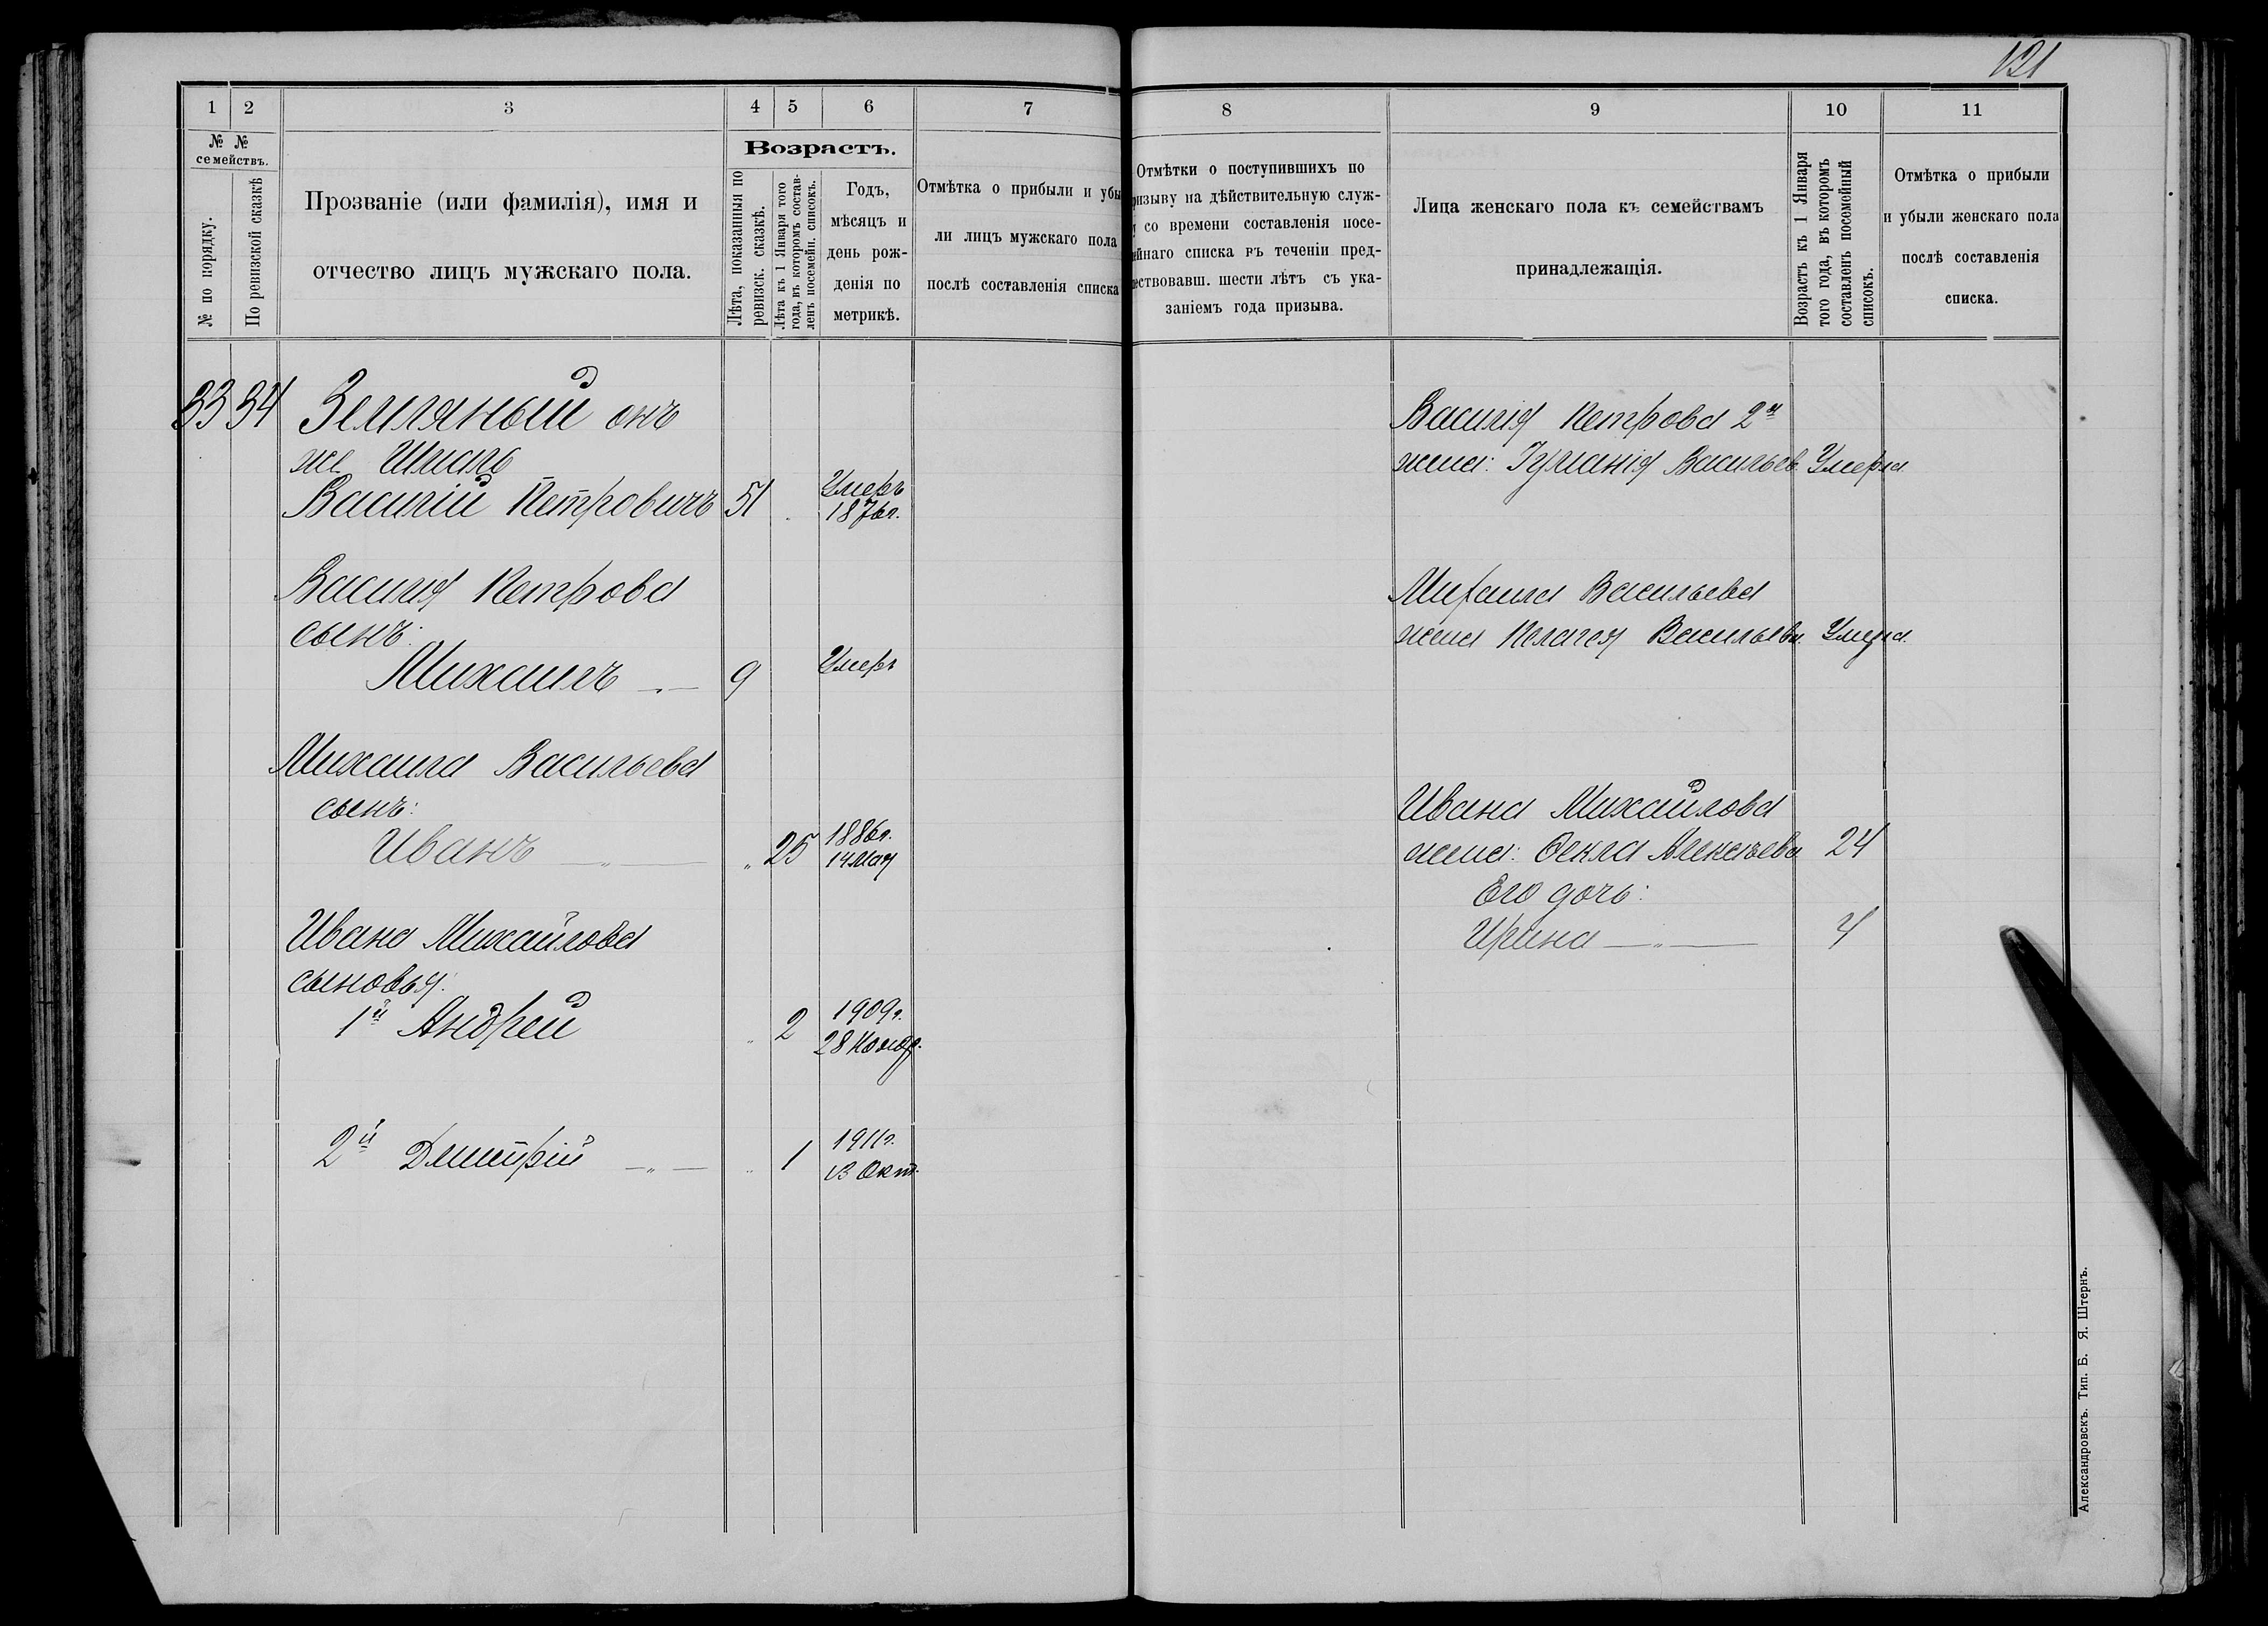 121
1 2 3 4 5 6 7
№ № семействъ.
№ по порядку.
По ревизской сказкѣ
Прозваніе (или фамилія), имя и
отчество лицъ мужскаго пола.
Возрастъ.
Лѣта, показанныя по
ревизск. сказкѣ.
Лѣта къ 1 Января того
года, въ которомъ состав-
ленъ посемейн. списокъ.
Годъ,
мѣсяцъ и
день рож-
денія по
метрикѣ.
Отмѣтка о прибыли и убы
ли лицъ мужскаго пола
послѣ составленія списка
33 34 Земляный онъ
же Шмаль
Василій Петровичъ 51 Умеръ
1876г.
Василія Петрова
сынъ:
Михаилъ 9 Умеръ
Михаила Васильева
сынъ:
Иванъ — „ — „ 25 1886г.
14 Мая
Ивана Михайлова
сыновья:
1й Андрей „ 2 1909г.
28 Ноябр.
2й Дмитрій — „ — „ 1 1911г.
13 Окт.
8 9 10 11
Отмѣтки о поступившихъ по
ризыву на дѣйствительную служ-
у со времени составленія посе-
ейнаго списка въ теченіи пред-
ествовавш. шести лѣтъ съ ука-
заніемъ года призыва.
Лица женскаго пола къ семействамъ
принадлежащія.
Возрастъ къ 1 Января
того года, въ которомъ
составленъ посемейный
списокъ.
Отмѣтка о прибыли
и убыли женскаго пола
послѣ составленія
списка.
Василія Петрова 2я
жена: Іуліанія Васильев. Умерла
Михаила Васильева
жена Пелагея Васильевн. Умерла.
Ивана Михайлова
жена: Фекла Алексѣева 24
Его дочь:
Ирина — „ — 4
Александровскъ. Тип. Б. Я. Штернъ.